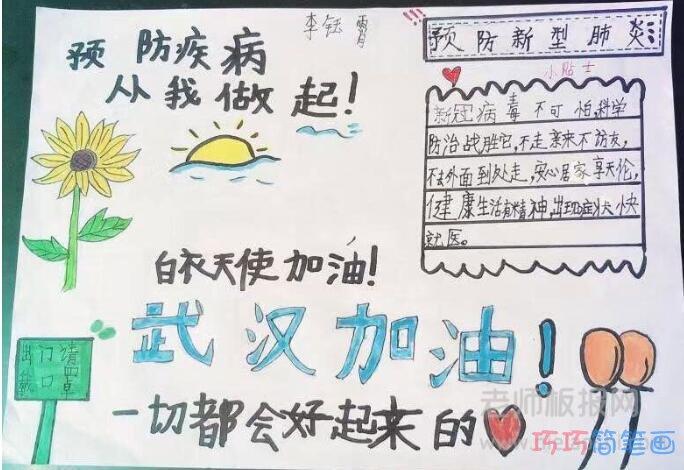 李钰霄
预防疾病
从我做起!
预防新型肺炎
小贴士
新冠病毒不可怕,科学
防治战胜它,不走亲来不访友,
不去外面到处走,安心居家享天伦,
健康生活有精神,出现症状快
就医。
白衣天使加油!
武汉加油!
出门请
戴口罩
一切都会好起来的
老师板报网
巧巧简笔画